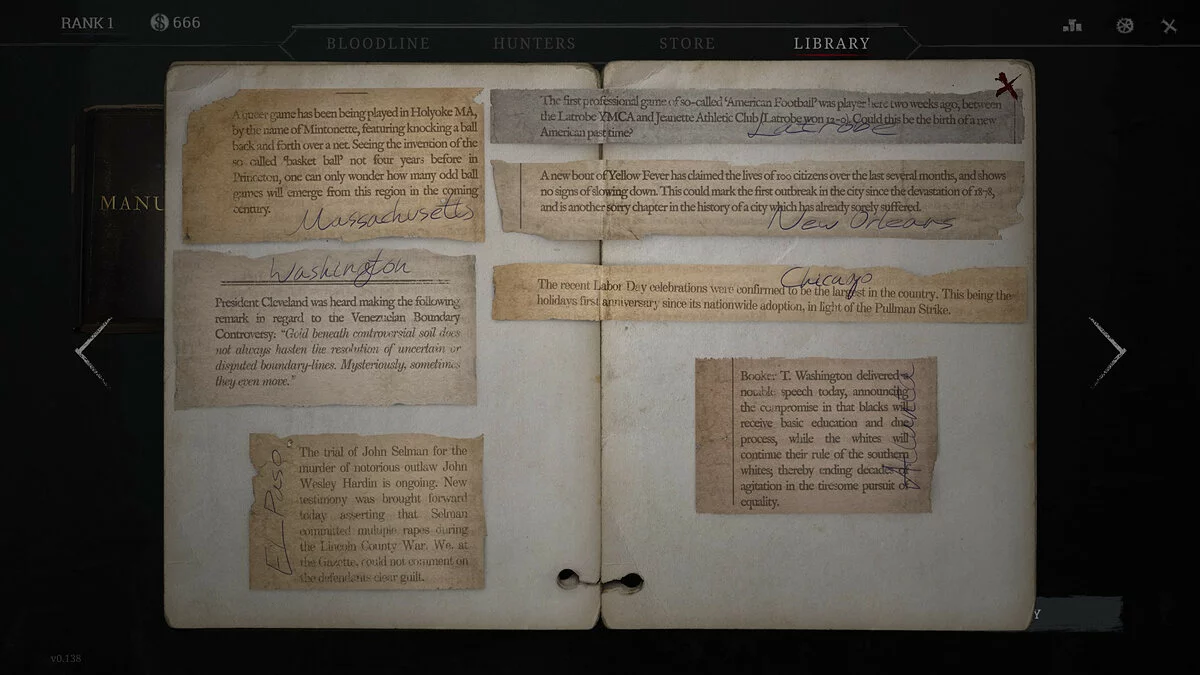 RANK 1
666
BLOODLINE
HUNTERS
STORE
LIBRARY
MANU
A queer game has been being played in Holyoke MA,
by the name of Mintonette, featuring knocking a ball
back and forth over a net. Seeing the invention of the
so called 'basket ball' not four years before in
Princeton, one can only wonder how many odd ball
games will emerge from this region in the coming
century.
Massachusetts
Washington
President Cleveland was heard making the following
remark in regard to the Venezuelan Boundary
Controversy: "Gold beneath controversial soil does
not always hasten the resolution of uncertain or
disputed boundary-lines. Mysteriously, sometimes
they even move."
EL Paso
The trial of John Selman for the
murder of notorious outlaw John
Wesley Hardin is ongoing. New
testimony was brought forward
today asserting that Selman
committed multiple rapes during
the Lincoln County War. We, at
the Gazette, could not comment on
the defendants clear guilt.
The first professional game of so-called 'American Football' was player here two weeks ago, between
the Latrobe YMCA and Jeanette Athletic Club (Latrobe won 12-0). Could this be the birth of a new
American past time?
Latrobe
A new bout of Yellow Fever has claimed the lives of 100 citizens over the last several months, and shows
no signs of slowing down. This could mark the first outbreak in the city since the devastation of 1878,
and is another sorry chapter in the history of a city which has already sorely suffered.
New Orleans
Chicago
The recent Labor Day celebrations were confirmed to be the largest in the country. This being the
holidays first anniversary since its nationwide adoption, in light of the Pullman Strike.
Booker T. Washington delivered a
notable speech today, announcing
the compromise in that blacks will
receive basic education and due
process, while the whites will
continue their rule of the southern
whites; thereby ending decades of
agitation in the tiresome pursuit of
equality.
Atlanta
Y
v0.138